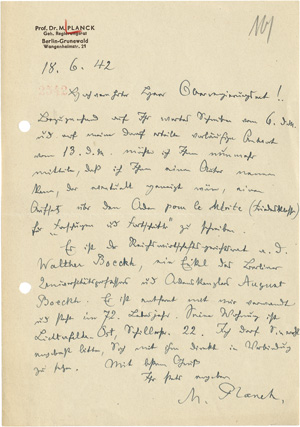 Prof. Dr. M. PLANCK
Geh. Regierungsrat
Berlin-Grunewald
Wangenheimstr. 21
18. 6. 42
Hochverehrter Herr Oberregierungsrat!
Bezugnehmend auf Ihr wertes Schreiben vom 6. d. M.
und auf meine darauf erteilte vorläufige Antwort
vom 13. d. M. möchte ich Ihnen nunmehr
mitteilen, daß ich Ihnen einen Autor nennen
kann, der eventuell geneigt wäre, einen
Aufsatz über den Orden pour le Mérite (Friedensklasse)
für "Forschungen und Fortschritte" zu schreiben.
Es ist der Reichswirtschaftsgerichtsrat a. D.
Walther Boeckh, ein Enkel des Berliner
Universitätsprofessors und Ordenskanzlers August
Boeckh. Er ist entfernt mit mir verwandt
und steht im 72. Lebensjahr. Seine Wohnung ist
Lichterfelde-Ost, 22. Ich darf Sie
bitten, Sich mit ihm direkt in Verbindung
zu setzen. Mit bestem Gruß
Ihr stets ergebener
M. Planck.